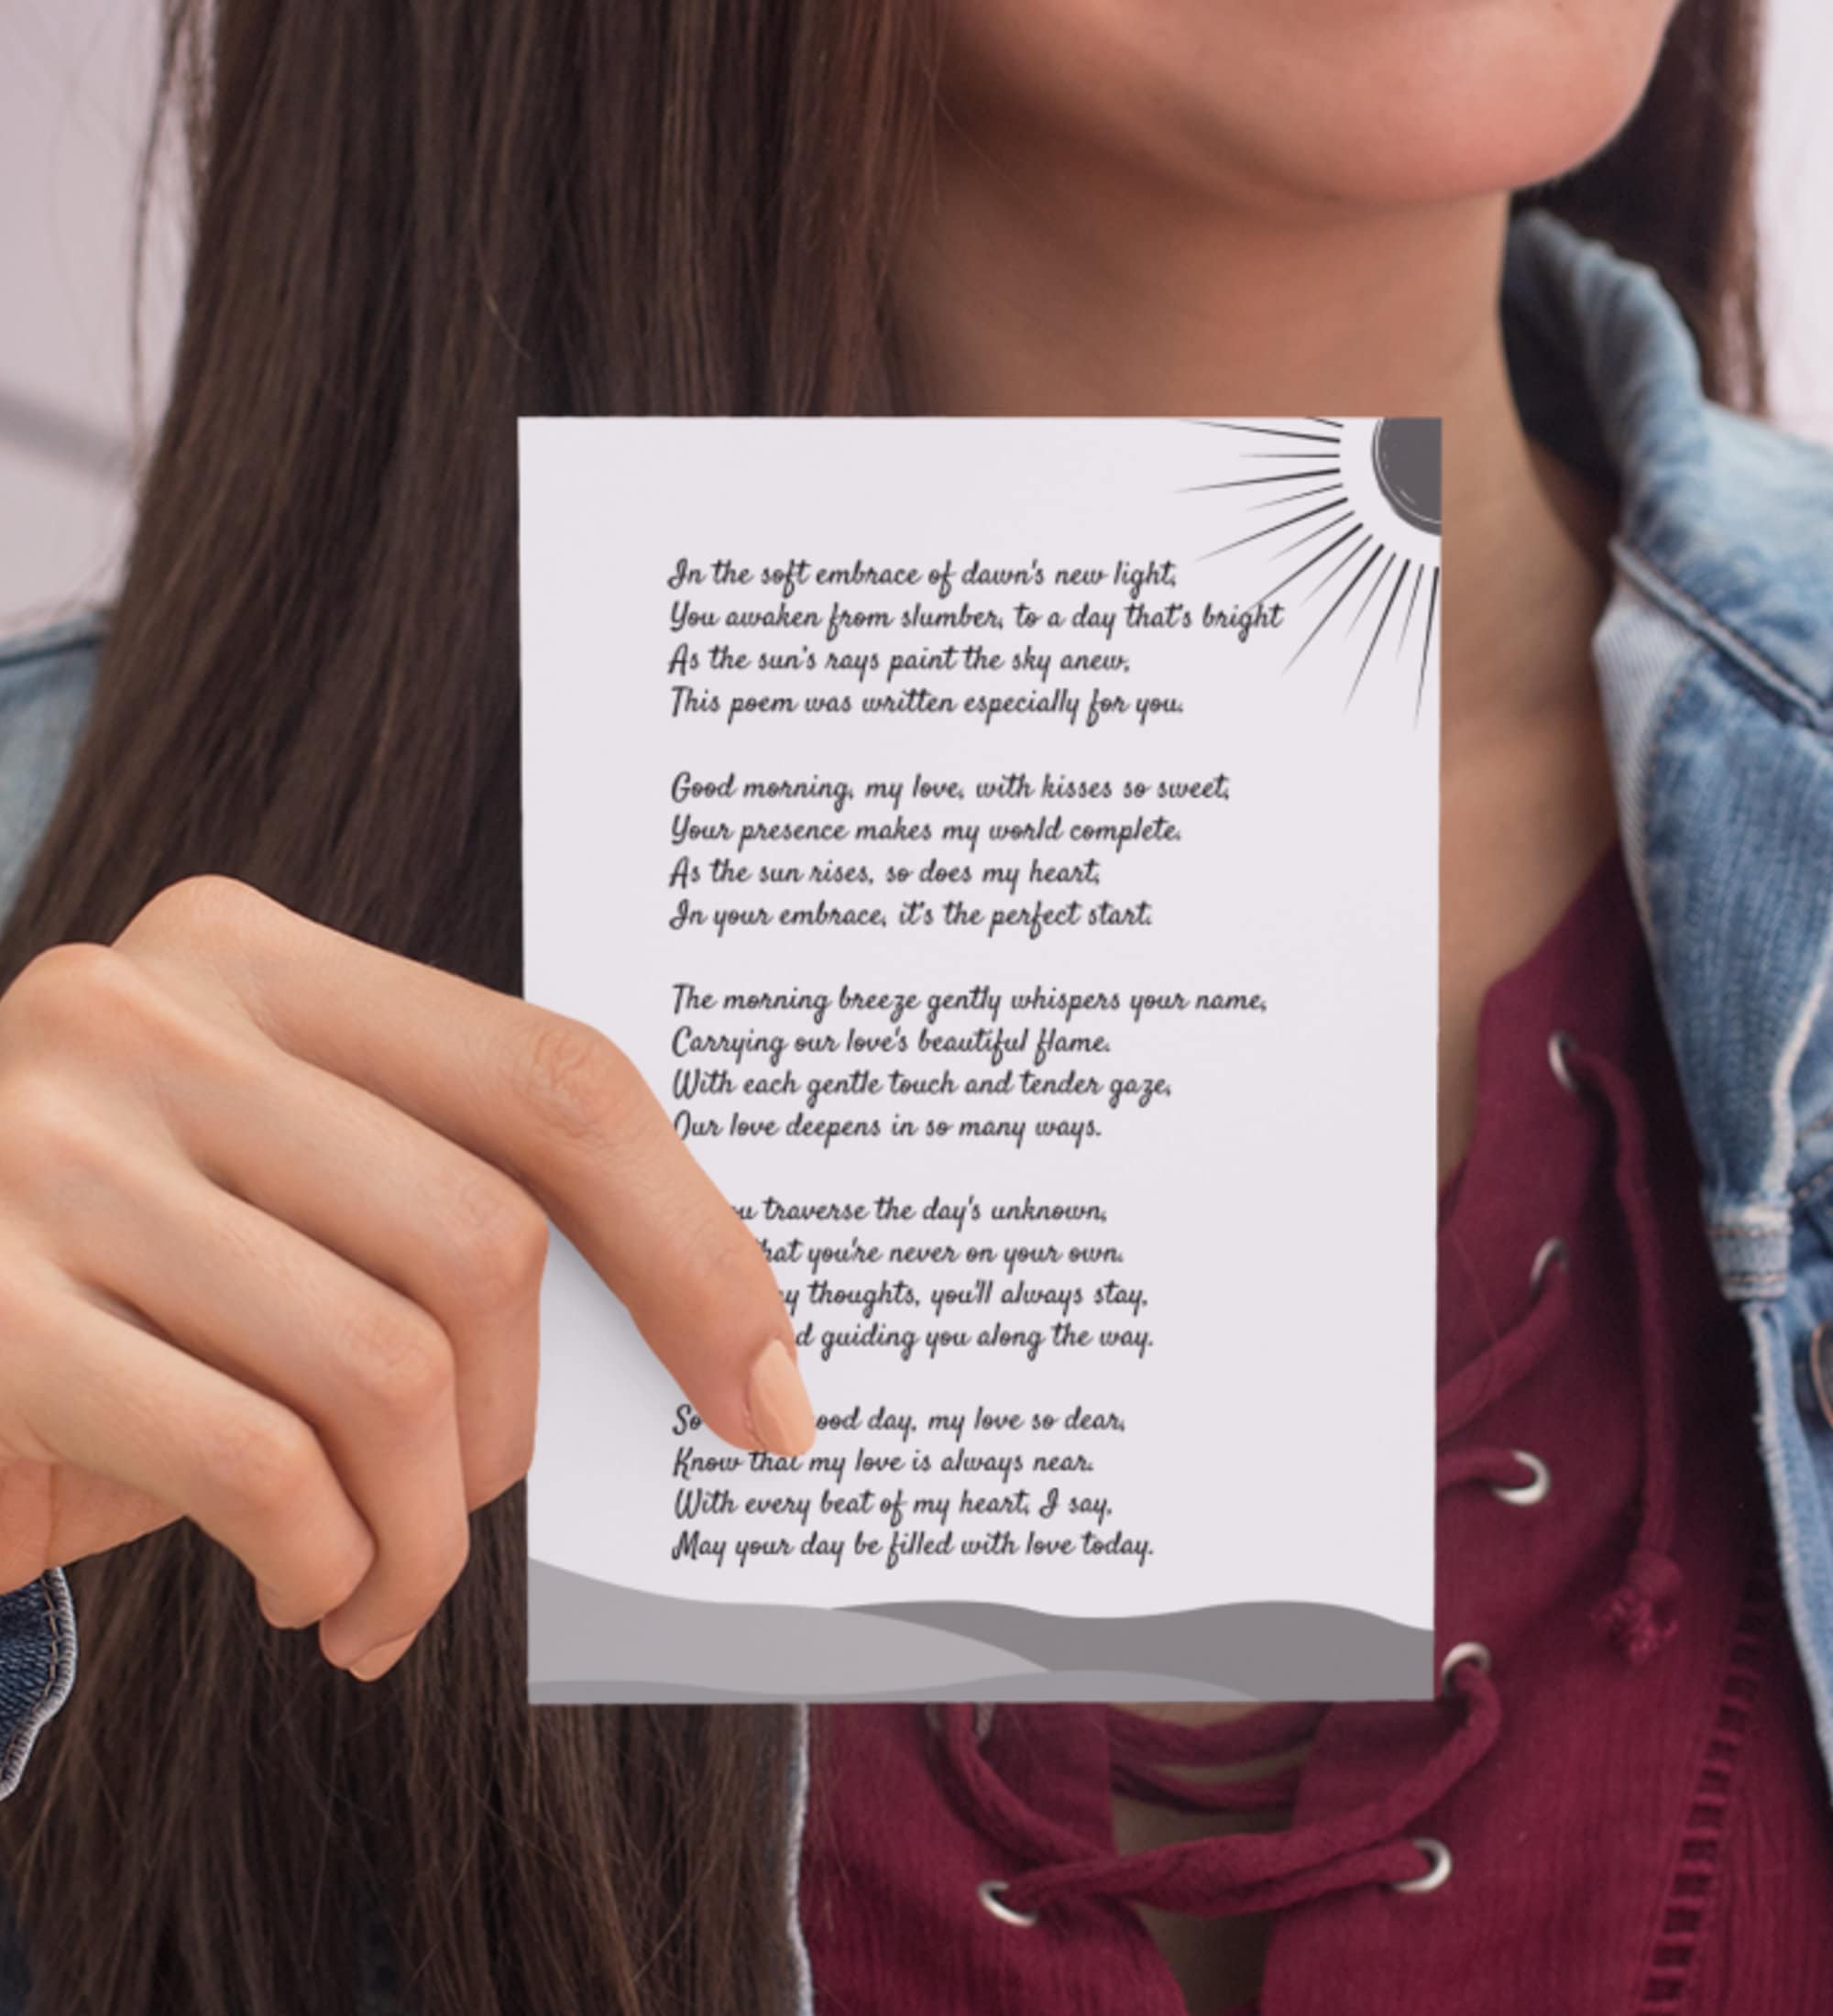 In the soft embrace of dawn's new light,
You awaken from slumber, to a day that's bright
As the sun's rays paint the sky anew,
This poem was written especially for you.
Good morning, my love, with kisses so sweet,
Your presence makes my world complete.
As the sun rises, so does my heart,
In your embrace, it's the perfect start.
The morning breeze gently whispers your name,
Carrying our love's beautiful flame.
With each gentle touch and tender gaze,
Our love deepens in so many ways.
traverse the day's unknown,
you're never on your own.
thoughts, you'll always stay,
guiding you along the way.
So day, my love so dear,
Know that my love is always near.
With every beat of my heart, I say,
May your day be filled with love today.